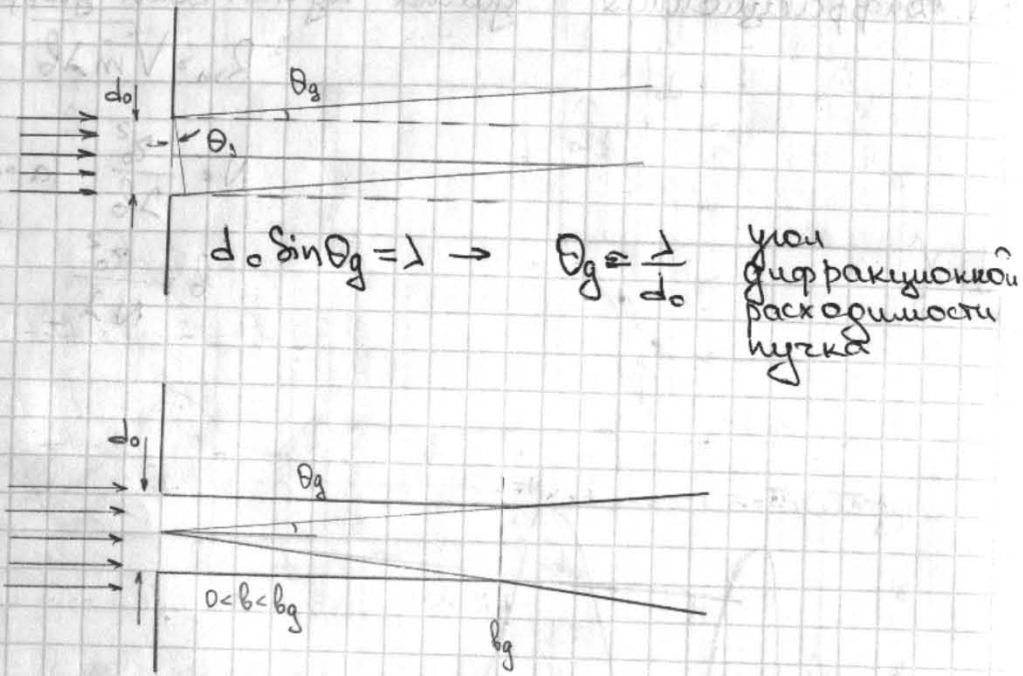 d₀
θg
θg
d₀ Sinθg = λ → θg = λ/d₀
угол
дифракционной
расходимости
пучка
d₀
θg
0<b<bg
bg